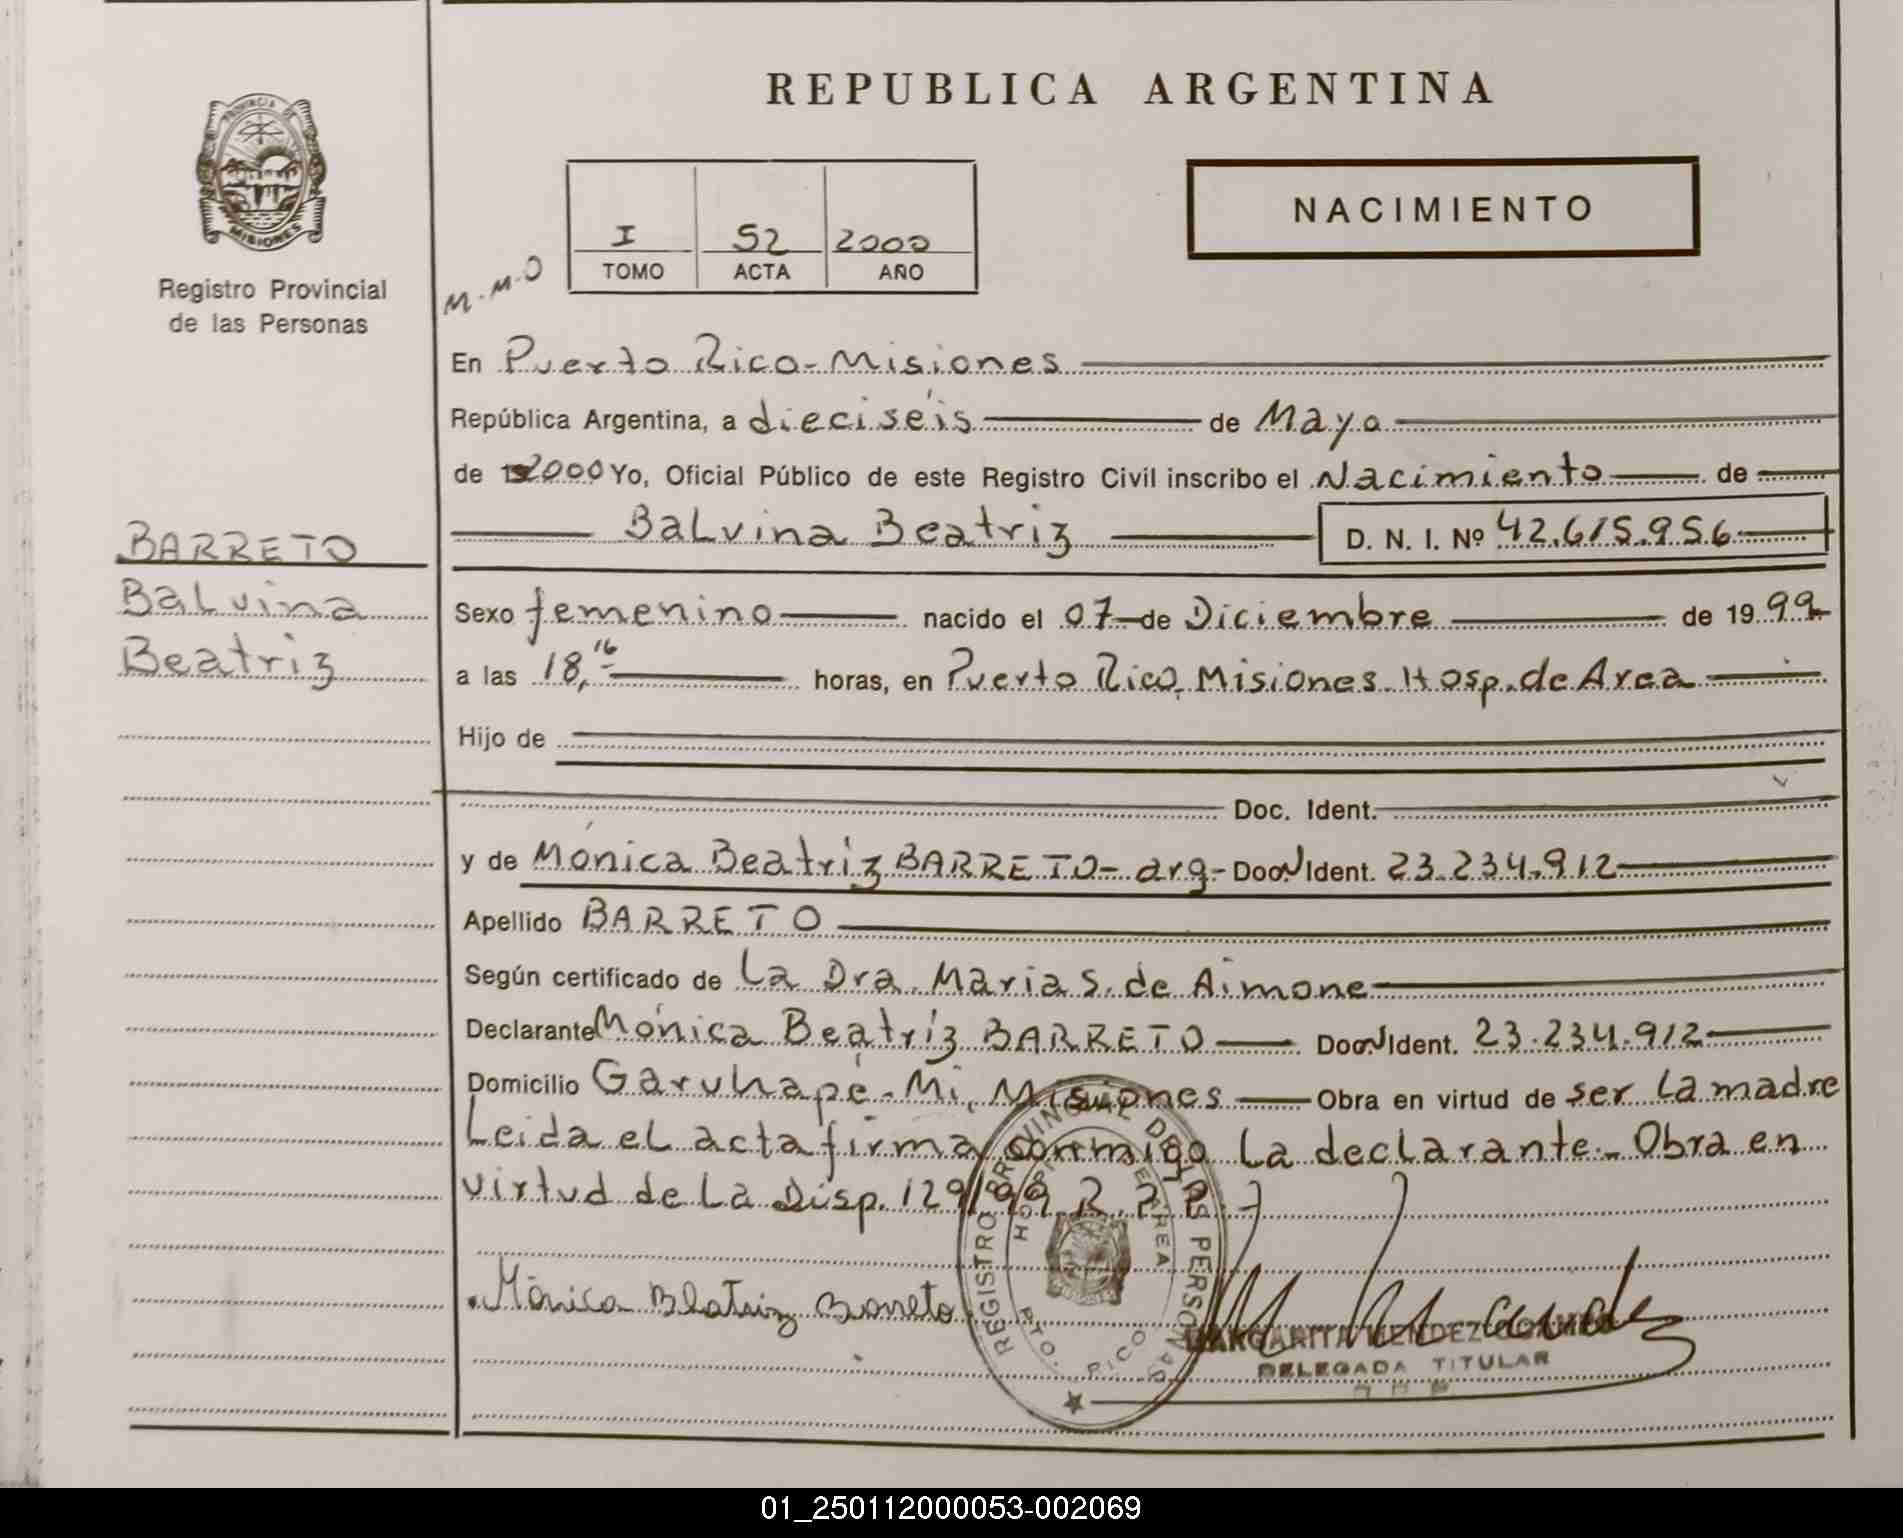 REPUBLICA ARGENTINA
PROVINCIA DE
MISIONES
Registro Provincial
de las Personas
NACIMIENTO
I S2 2000
TOMO ACTA AÑO
M.M.O
En Puerto Rico-Misiones
República Argentina, a dieciséis de Mayo
de 2000 Yo, Oficial Público de este Registro Civil inscribo el Nacimiento de
Balvina Beatriz D. N. I. Nº 42.615.956
BARRETO
Balvina
Beatriz
Sexo femenino nacido el 07 de Diciembre de 1999
a las 18,16 horas, en Puerto Rico, Misiones Hosp. de Area
Hijo de
Doc. Ident.
y de Mónica Beatriz BARRETO- arg- Doc. Ident. 23.234.912
Apellido BARRETO
Según certificado de La Dra. Maria S. de Aimone
Declarante Mónica Beatríz BARRETO Doc. Ident. 23.234.912
Domicilio Garuhapé-Mi, Misiones Obra en virtud de ser la madre
Leida el acta firma conmigo la declarante.- Obra en
virtud de la Disp. 129/99 R.P.P.-
Mónica Beatriz Barreto
REGISTRO PROVINCIAL DE LAS PERSONAS
HOSPITAL DE AREA
PTO. RICO
MARGARITA MENDEZ
DELEGADA TITULAR
01_250112000053-002069